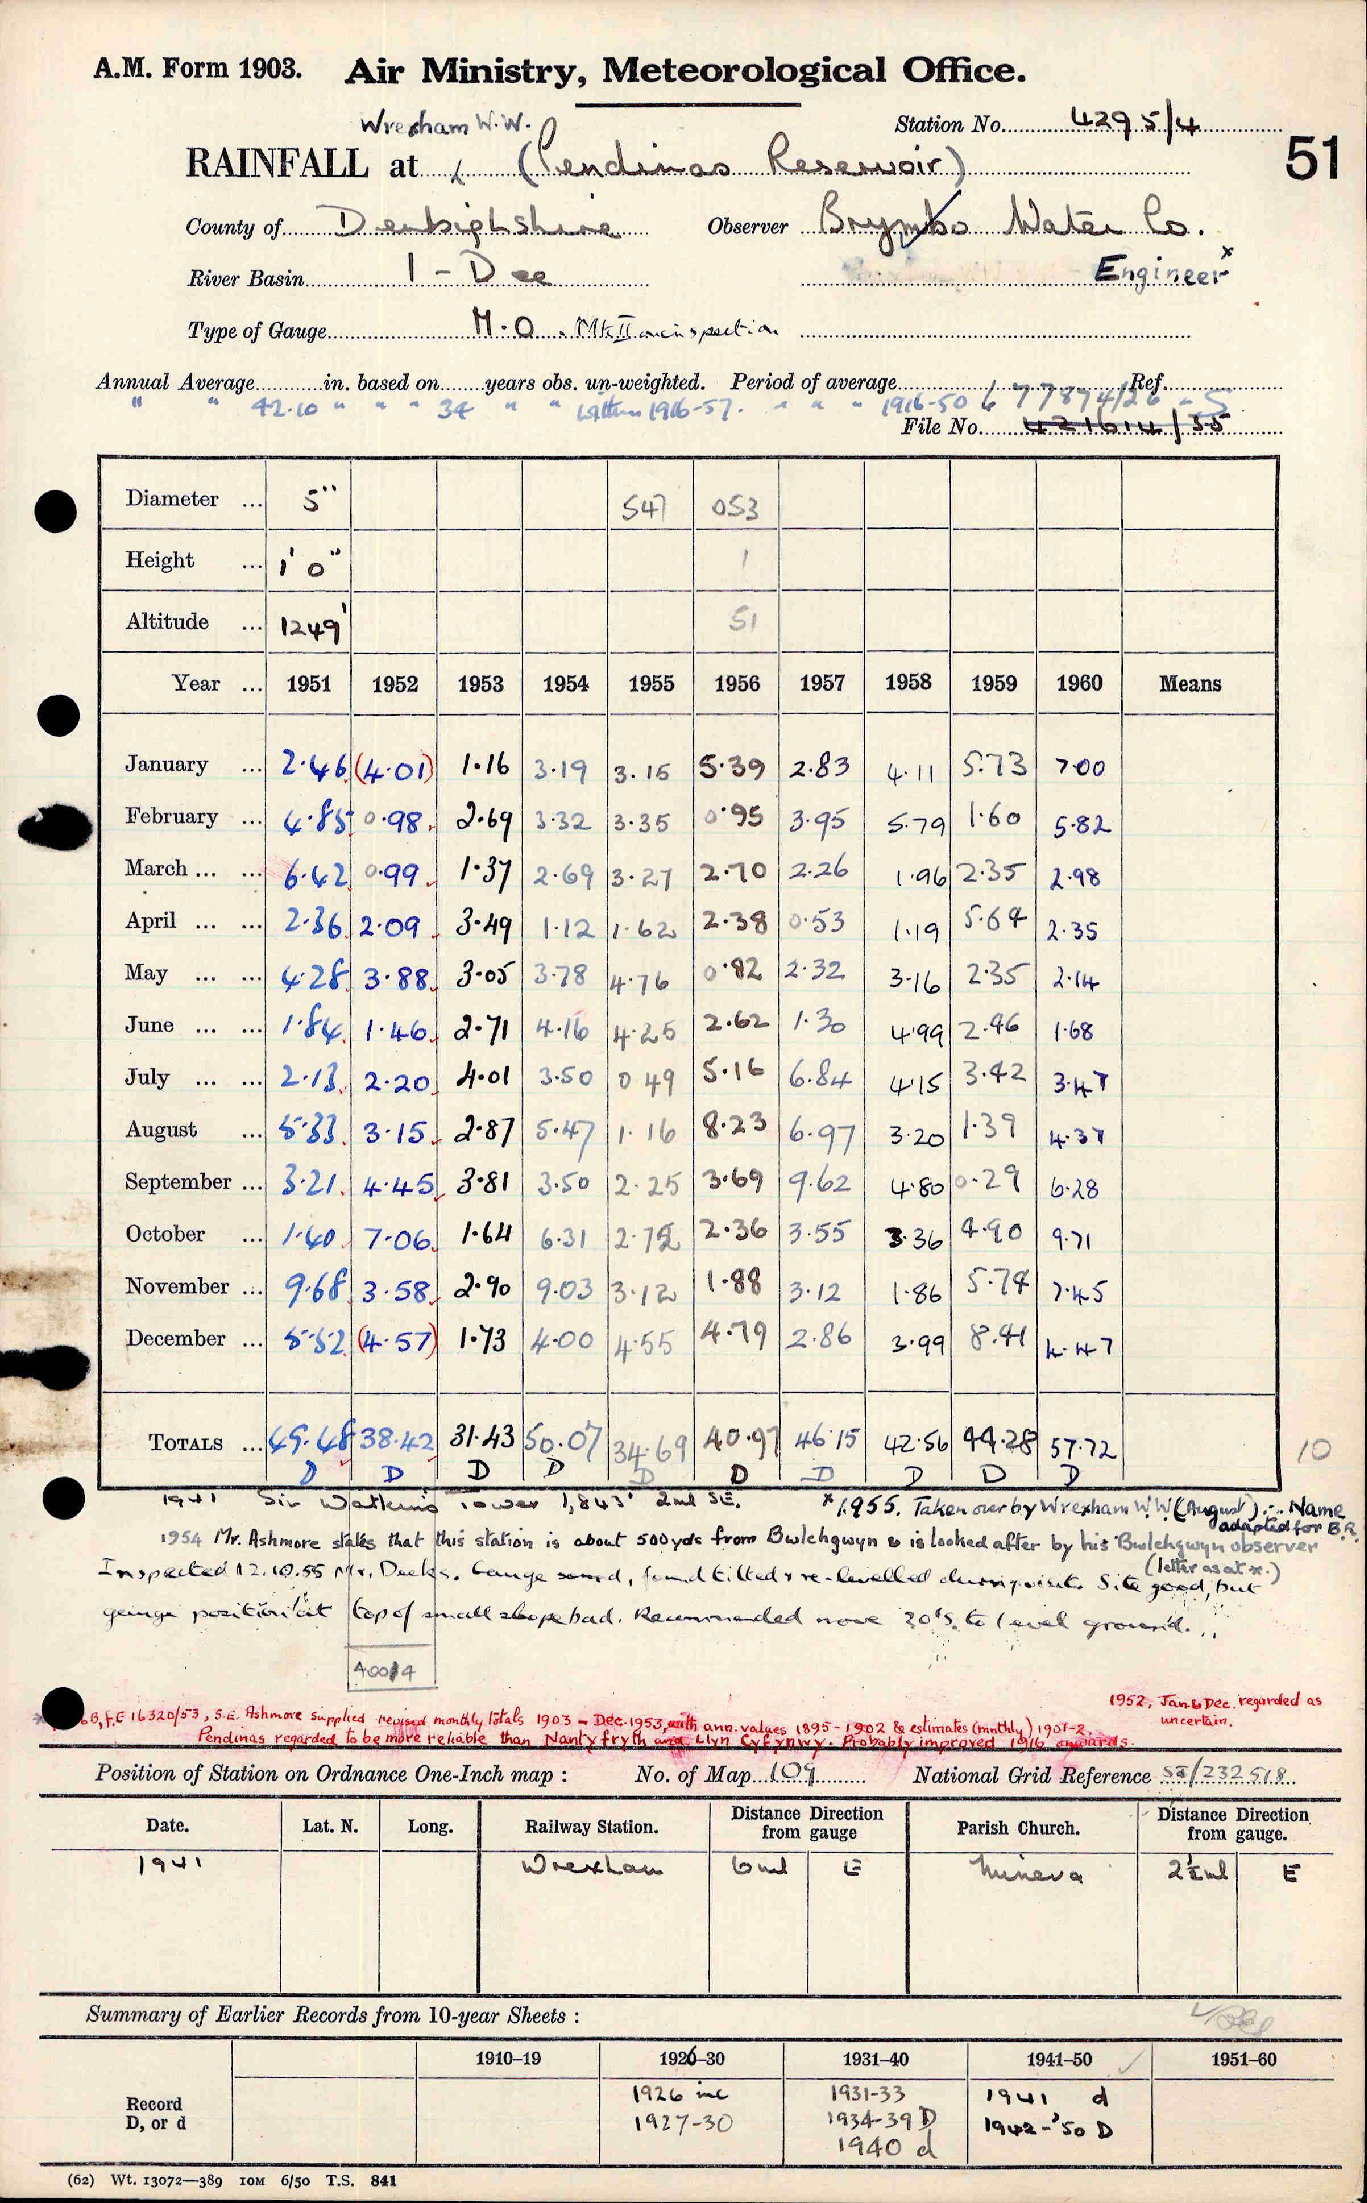 A.M. Form 1903. Air Ministry, Meteorological Office.
Wrexham W.W.
Station No. 4295/4
51
RAINFALL at (Pendinas Reservoir)
County of Denbighshire Observer Brymbo Water Co.
River Basin 1 - Dee Engineer x
Type of Gauge M.O. Mk II on inspection
Annual Average in. based on years obs. un-weighted. Period of average Ref.
" " 42.10 " " " 34 " " within 1916-57. " " " 1916-50 677874/26 - S
File No. 421614/35
Diameter ... 5" 547 053
Height ... 1' 0" 1
Altitude ... 1249' 51
Year ... 1951 1952 1953 1954 1955 1956 1957 1958 1959 1960 Means
January ... 2.46 (4.01) 1.16 3.19 3.15 5.39 2.83 4.11 5.73 7.00
February ... 4.85 0.98 2.69 3.32 3.35 0.95 3.95 5.79 1.60 5.82
March ... ... 6.42 0.99 1.37 2.69 3.27 2.70 2.26 1.96 2.35 2.98
April ... ... 2.36 2.09 3.49 1.12 1.62 2.38 0.53 1.19 5.64 2.35
May ... ... 4.28 3.88 3.05 3.78 4.76 0.82 2.32 3.16 2.35 2.14
June ... ... 1.84 1.46 2.71 4.16 4.25 2.62 1.30 4.99 2.46 1.68
July ... ... 2.13 2.20 4.01 3.50 0 49 5.16 6.84 4.15 3.42 3.47
August ... 5.33 3.15 2.87 5.47 1.16 8.23 6.97 3.20 1.39 4.37
September ... 3.21 4.45 3.81 3.50 2.25 3.69 9.62 4.80 0.29 6.28
October ... 1.40 7.06 1.64 6.31 2.72 2.36 3.55 3.36 4.90 9.71
November ... 9.68 3.58 2.90 9.03 3.12 1.88 3.12 1.86 5.74 7.45
December ... 5.52 (4.57) 1.73 4.00 4.55 4.79 2.86 3.99 8.41 4.47
TOTALS ... 49.48 38.42 31.43 50.07 34.69 40.97 46.15 42.56 44.28 57.72
10
D D D D D D D D D D
1941 Sir Watkin's Tower 1,843' 2ml SE. *1955. Taken over by Wrexham W.W. (August) ∴ Name
adapted for B.R.
1954 Mr. Ashmore states that this station is about 500yds from Bwlchgwyn & is looked after by his Bwlchgwyn observer
(letter as at x.)
Inspected 12.10.55 Mr. Deeks. Gauge sound, found tilted & re-levelled during visit. Site good, but
gauge position at top of small slope bad. Recommended move 30' S. to level ground.
4004
1952, Jan & Dec. regarded as
uncertain.
16320/53, S.E. Ashmore supplied revised monthly totals 1903 - Dec. 1953, with ann. values 1895-1902 & estimates (monthly) 1901-2.
Pendinas regarded to be more reliable than Nantyfryth and Llyn Cyfynwy. Probably improved 1916 onwards.
Position of Station on Ordnance One-Inch map : No. of Map 109 National Grid Reference SJ/232518
Date. Lat. N. Long. Railway Station. Distance Direction from gauge Parish Church. Distance Direction from gauge.
1941 Wrexham 6ml E Minera 2½ml E
Summary of Earlier Records from 10-year Sheets :
1910–19 1926–30 1931–40 1941–50 1951–60
Record D, or d
1926 inc 1931-33 1941 d
1927-30 1934-39 D 1942-'50 D
1940 d
(62) Wt. 13072—389 IOM 6/50 T.S. 841